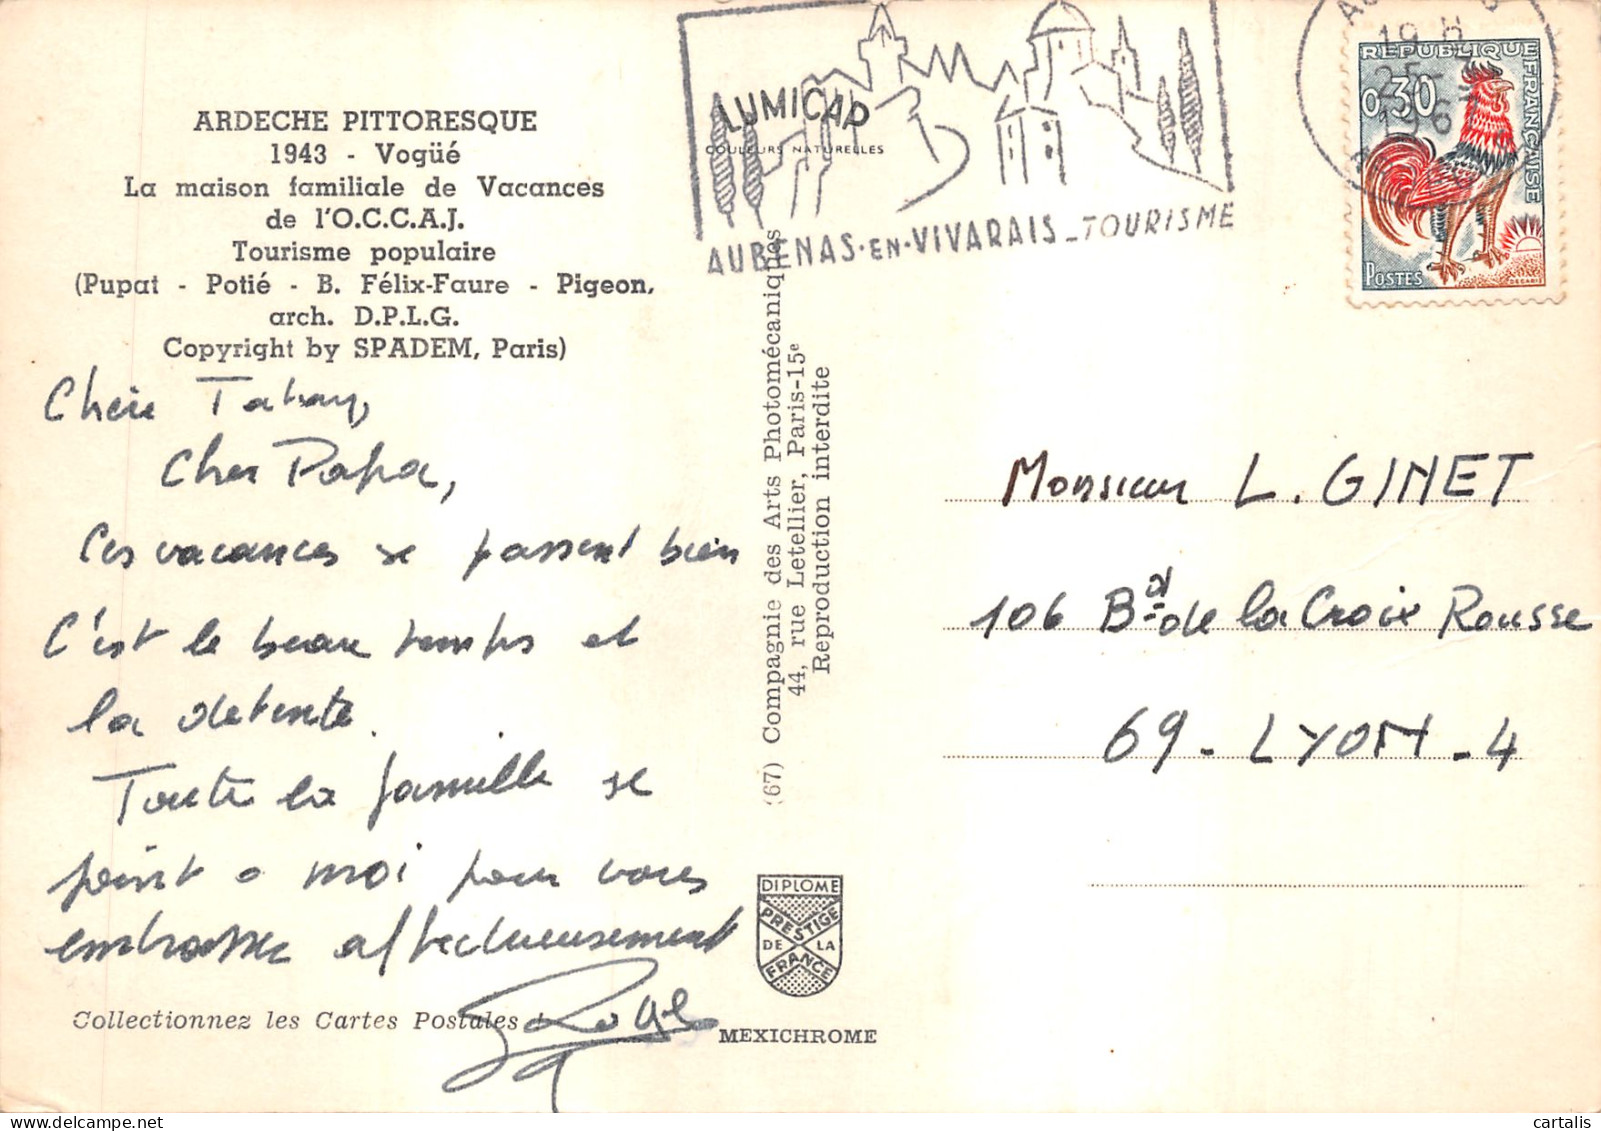 ARDECHE PITTORESQUE
1943 - Vogüé
La maison familiale de Vacances
de l'O.C.C.A.J.
Tourisme populaire
(Pupat - Potié - B. Félix-Faure - Pigeon,
arch. D.P.L.G.
Copyright by SPADEM, Paris)
Chère
Cher Papa,
Ces vacances se passent bien
C'est le beau temps et
la detente.
Toute la famille se
joint a moi pour vous
embrasser affectueusement
Roger
Collectionnez les Cartes Postales !
LUMICAP
COULEURS NATURELLES
AUBENAS-EN-VIVARAIS_TOURISME
(67) Compagnie des Arts Photomécaniques
44, rue Letellier, Paris-15e
Reproduction interdite
DIPLOME
PRESTIGE
DE LA
FRANCE
MEXICHROME
19 H
25-
REPUBLIQUE FRANÇAISE
0,30
POSTES
DECARIS
Monsieur L. GINET
106 Bd de la Croix Rousse
69 - LYON - 4
cartalis
delcampe.net